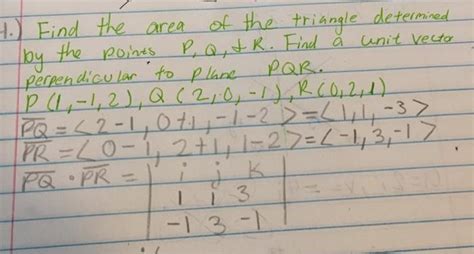 1.) Find the area of the triangle determined
by the points P, Q, & R. Find a unit vector
perpendicular to plane PQR.
P(1,-1,2), Q(2,0,-1), R(0,2,1)
PQ = <2-1, 0+1, -1-2> = <1,1,-3>
PR = <0-1, 2+1, 1-2> = <-1,3,-1>
PQ · PR = | i j k |
1 1 3
-1 3 -1